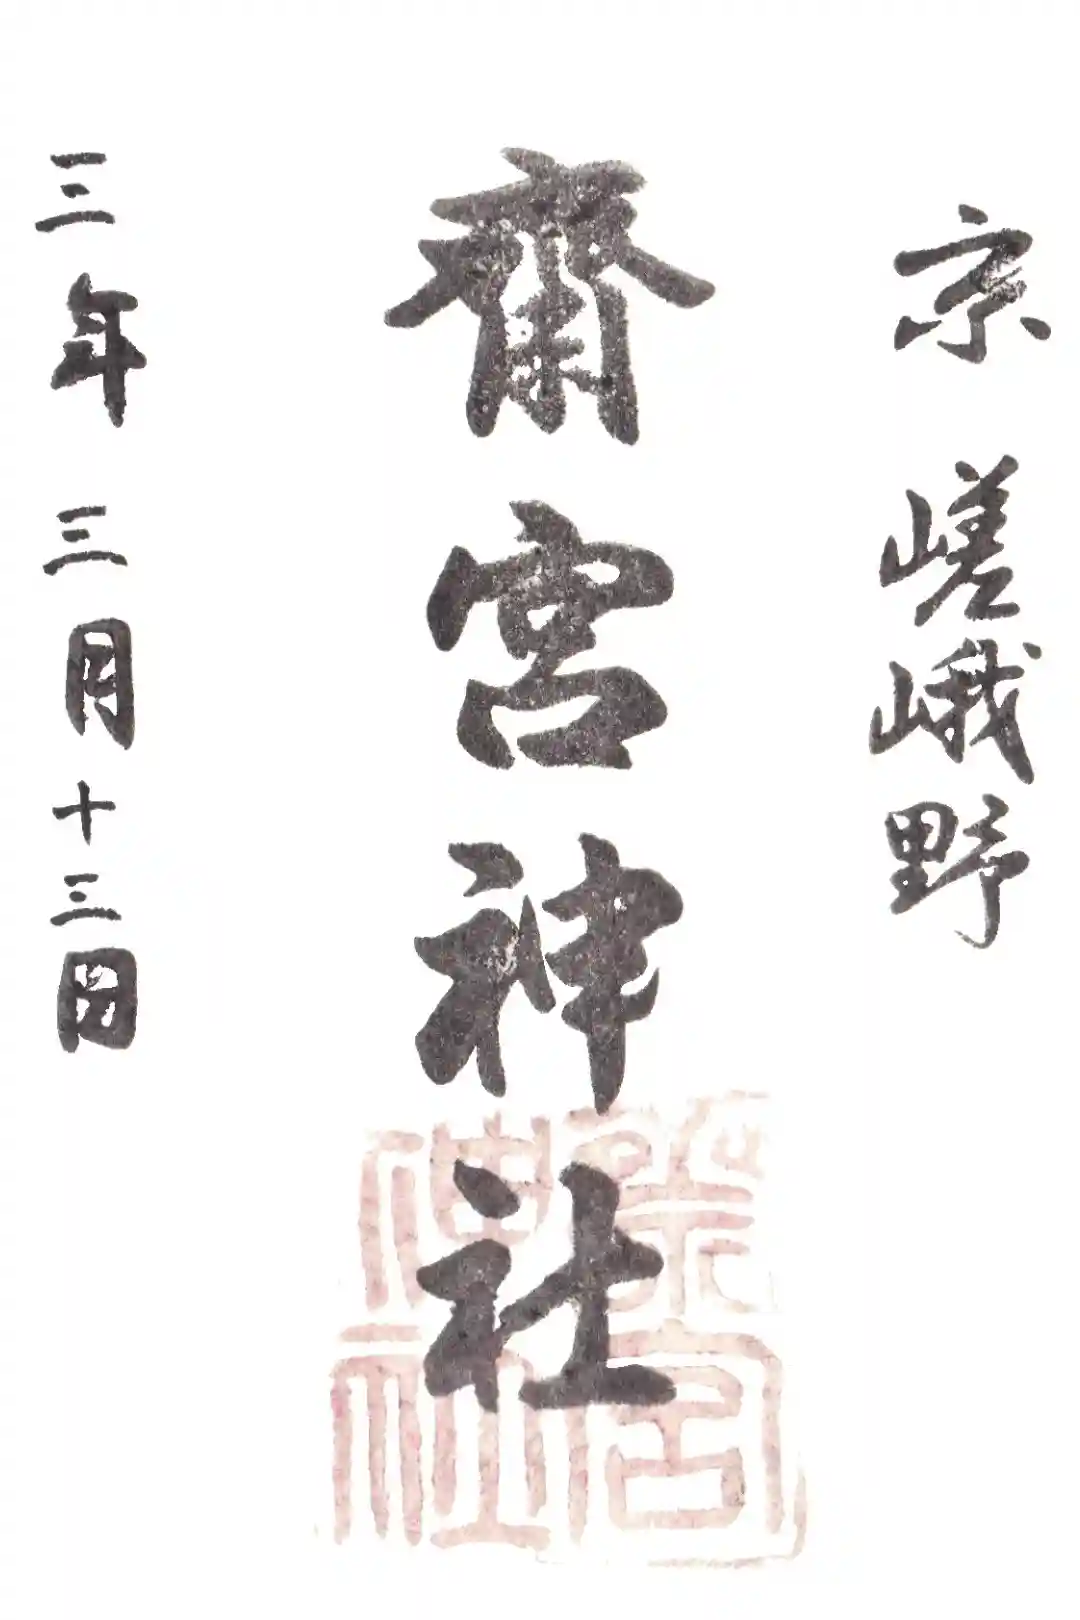 京 嵯峨野
齋宮神社
三年 三月十三日
齋宮神社